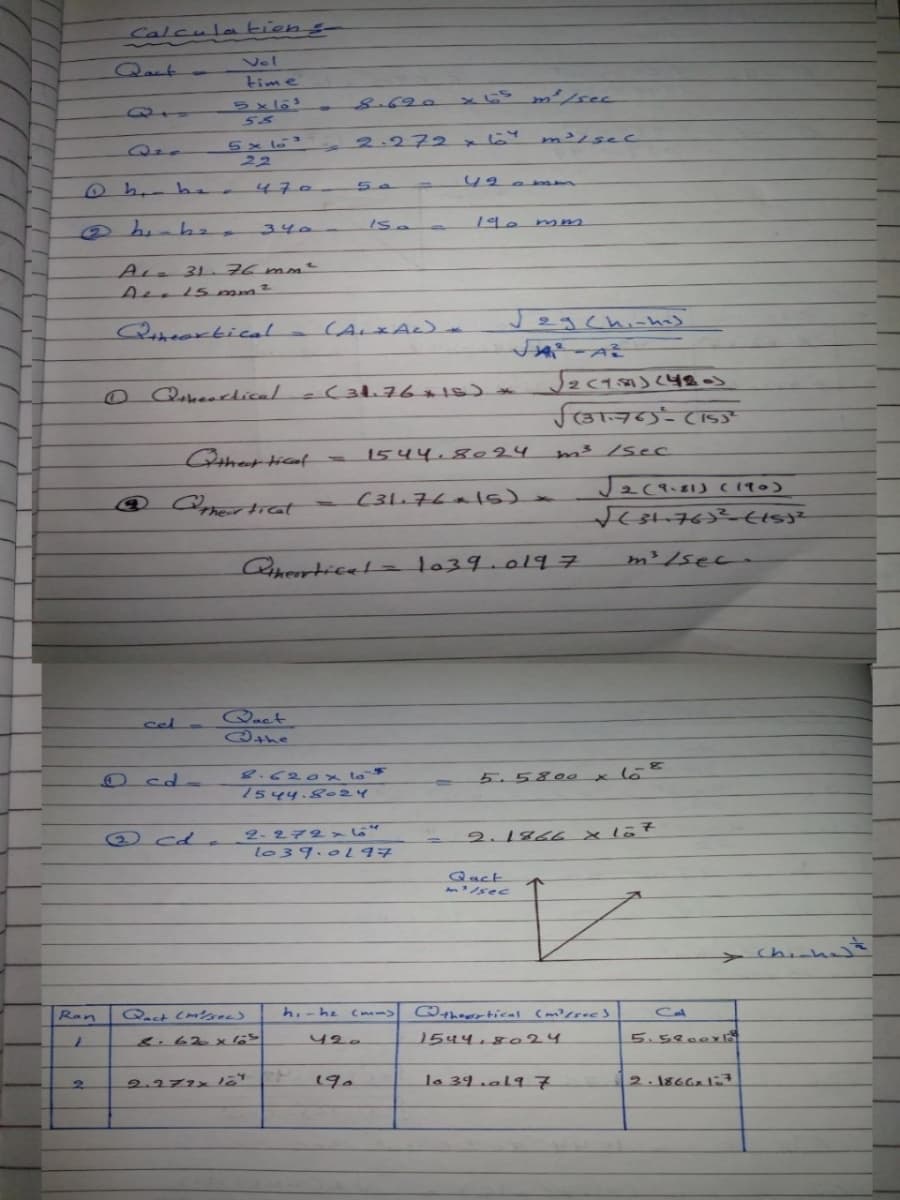 Calculations
Qact = Vol / time
Q1 = 5 x 10^-3 / 58 = 8.620 x 10^-5 m³/sec
Q2 = 5 x 10^-3 / 22 = 2.272 x 10^-4 m³/sec
① h1 - h2 = 470 - 50 = 420 mm
② h1 - h2 = 340 - 150 = 190 mm
A1 = 31.76 mm²
A2 = 15 mm²
Qtheortical = (A1 x A2) * √2g(h1-h2) / √A1² - A2²
① Qtheortical = (31.76 * 15) * √2(9.81)(420) / √(31.76)² - (15)²
Qtheortical = 1544.8024 m³/sec
② Qtheortical = (31.76 * 15) * √2(9.81)(190) / √(31.76)² - (15)²
Qtheortical = 1039.0197 m³/sec.
cd = Qact / Qthe
① cd = 8.620 x 10^-5 / 1544.8024 = 5.5800 x 10^-8
② cd = 2.272 x 10^-4 / 1039.0197 = 2.1866 x 10^-7
Qact
m³/sec
(h1-h2)^½
Ran Qact (m³/sec) h1-h2 (mm) Qtheortical (m³/sec) Cd
1 8.620 x 10^-5 420 1544.8024 5.5800x10^-8
2 2.272x 10^-4 190 1039.0197 2.1866x10^-7